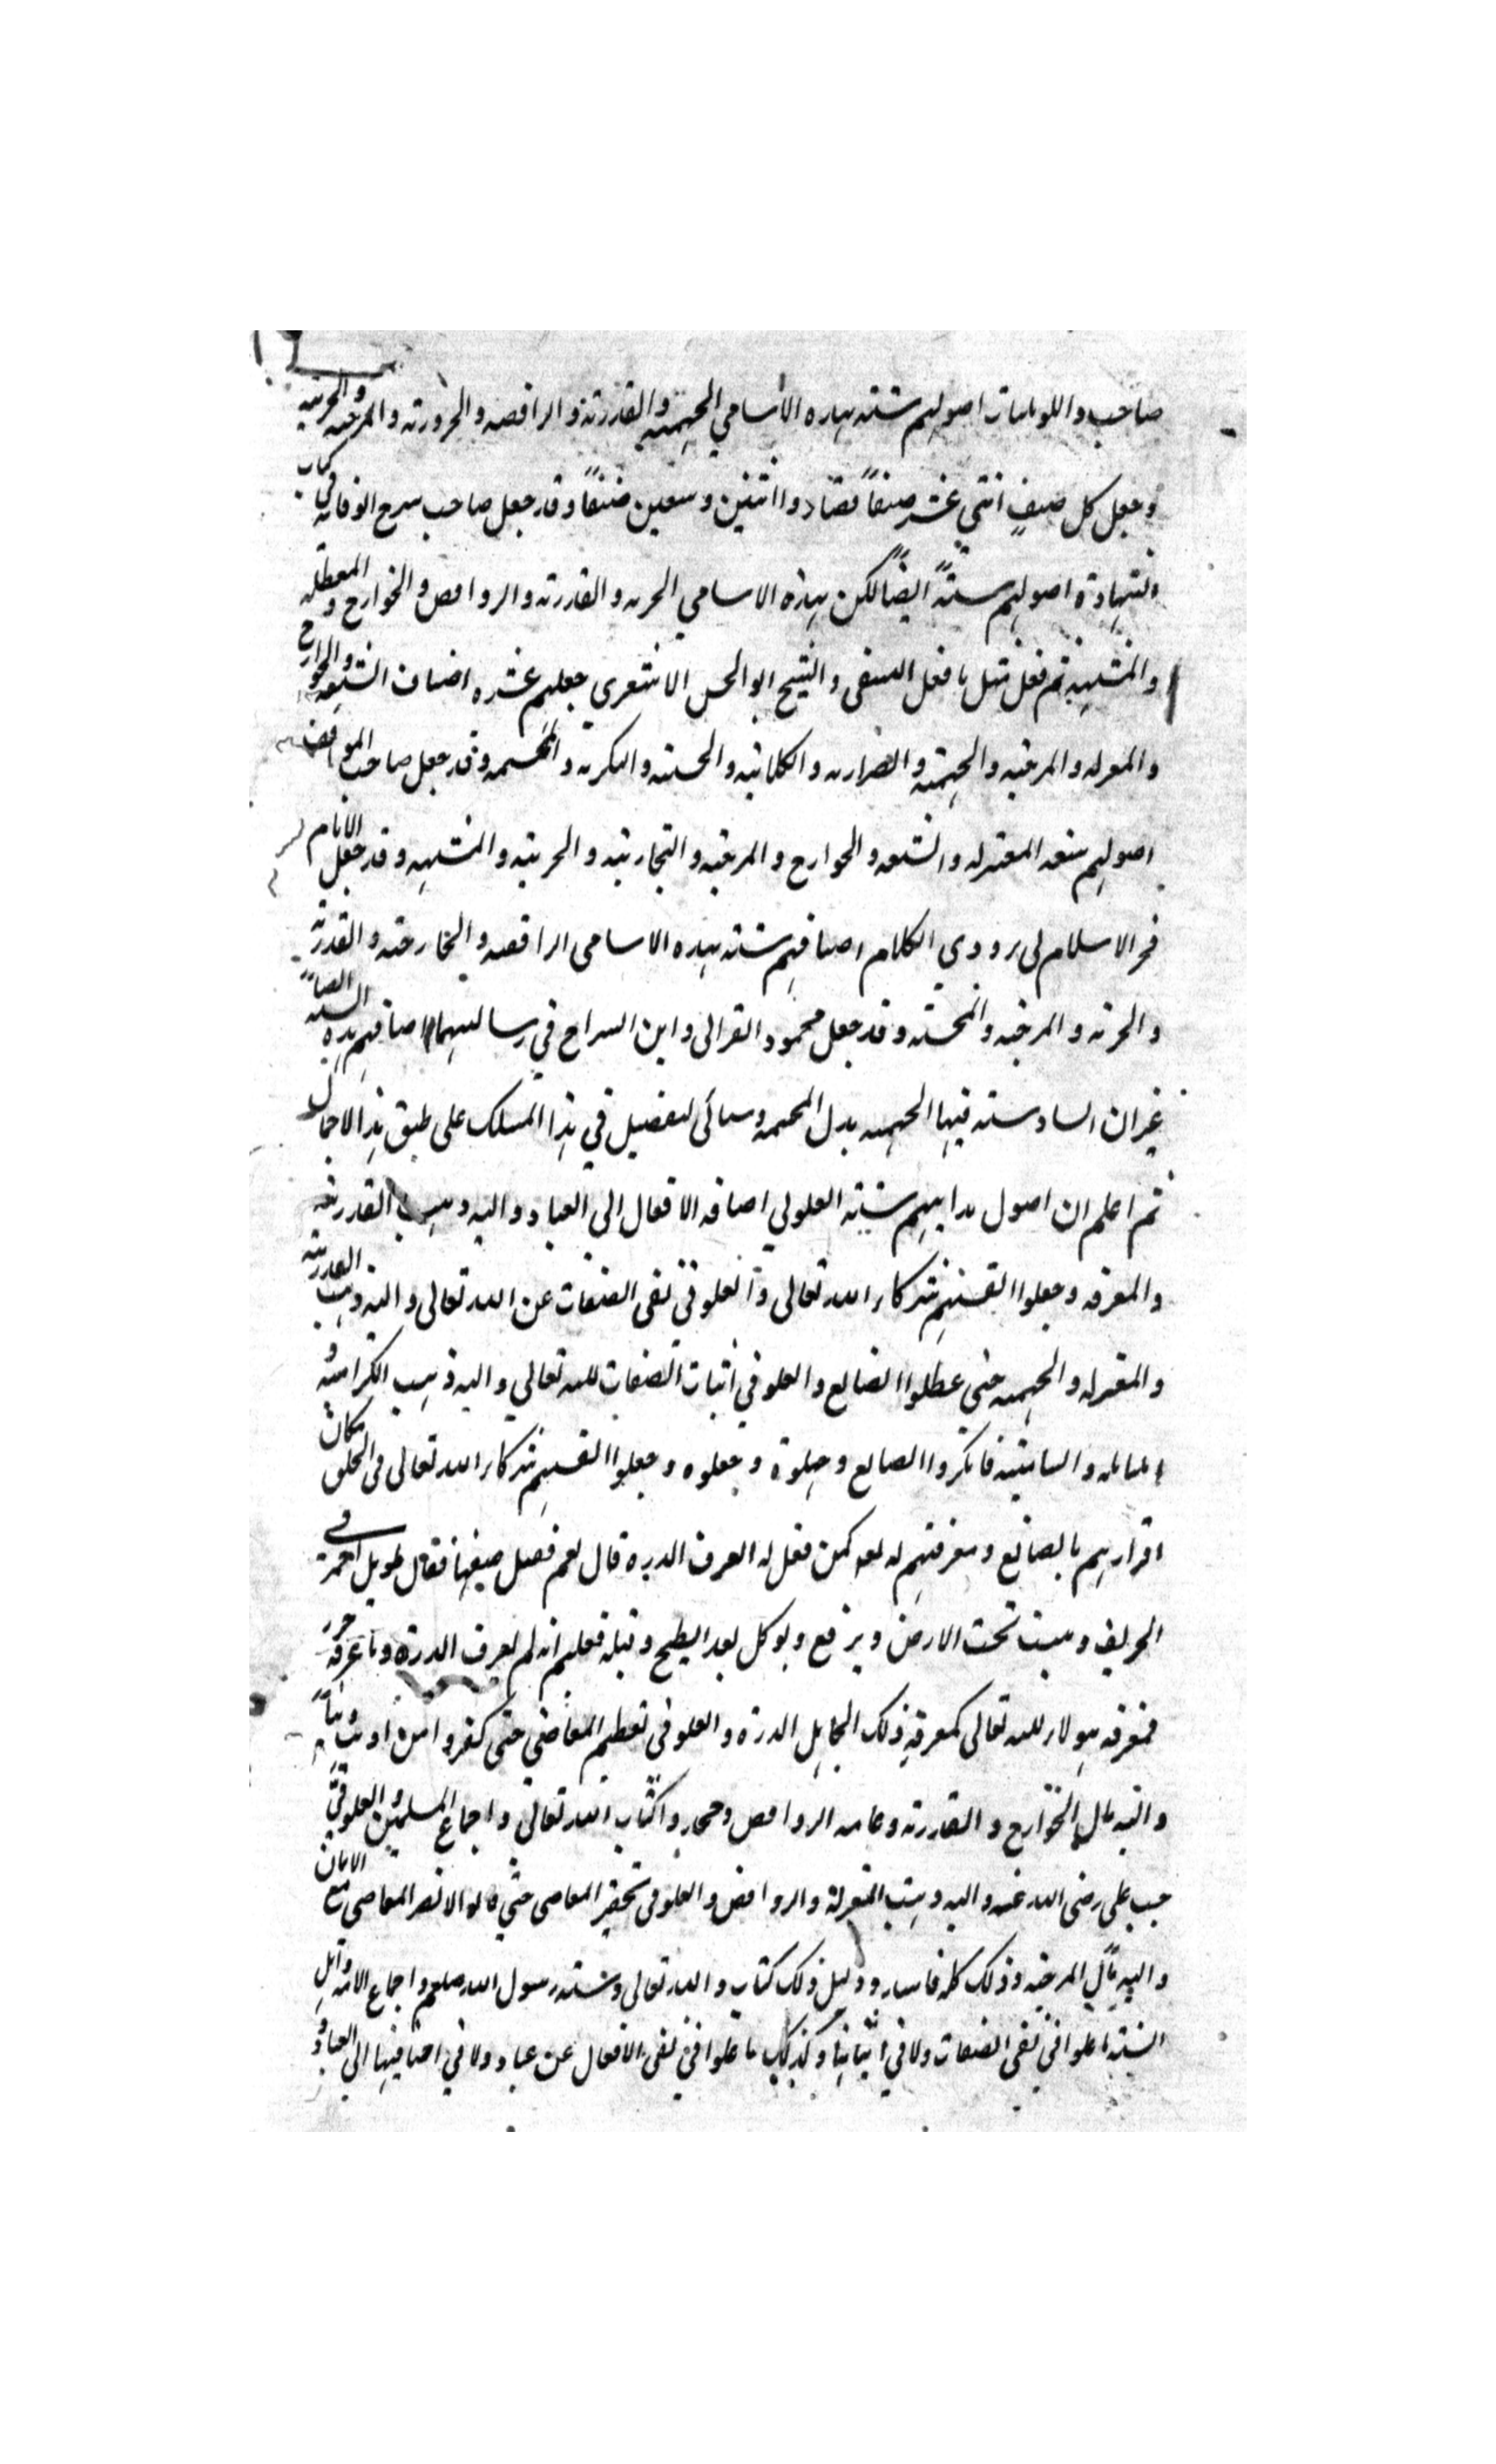 صاحب و اصولهم ستة بهذه الاسامي الجهمية والقدرية والرافضة والحرورية والمرجئة والجبرية
وجعل كل صنف اثنتي عشر صنفاً فصاروا اثنين وسبعين صنفاً وقد جعل صاحب شرح الوقاية في كتاب
الشهادة اصولهم ستة ايضاً لكن بهذه الاسامي الجبرية والقدرية والروافض والخوارج والمعطلة
والمشبهة ثم فعل مثل ما فعل النسفي والشيخ ابو الحسن الاشعري جعلهم عشرة اصناف الشيعة والخوارج
والمعتزلة والمرجئة والجهمية والضرارية والكلابية والحسينية والبكرية والمجسمة وقد جعل صاحب المواقف
اصولهم سبعة المعتزلة والشيعة والخوارج والمرجئة والنجارية والجبرية والمشبهة وقد جعل الامام
فخر الاسلام الكلام اصنافهم ستة بهذه الاسامي الرافضة والخارجية والقدرية
والجبرية والمرجئة والمجسمة وقد جعل محمود وابن السراج في رسالتيهما اصنافهم بهذه الستة ايضاً
غير ان السادسة فيها الجهمية بدل المجسمة وسيأتي تفصيل في هذا المسلك على طبق هذا الاجمال
ثم اعلم ان اصول مذاهبهم ستة الغلو في اضافة الافعال الى العباد واليه ذهبت القدرية
والمعتزلة وجعلوا انفسهم شركاء الله تعالى والغلو في نفى الصفات عن الله تعالى واليه ذهبت القدرية
والمعتزلة والجهمية حتى عطلوا الصانع والغلو في اثبات الصفات لله تعالى واليه ذهبت الكرامية و
فانكروا الصانع وجهلوه وجعلوه وجعلوا انفسهم شركاء الله تعالى في الخلق فكان
اقرارهم بالصانع ومعرفتهم له كمن فعل له اتعرف الدرة قال نعم فقيل صفها فقال طويل احمر في
الخريف وينبت تحت الارض ويرفع ويوكل بعد الطبخ وقبله فعلم انه لم يعرف الدرة وما عرفه جزر
فمعرفة هولاء لله تعالى كمعرفة ذلك الجاهل الدرة والغلو في تعظيم المعاصي حتى كفروا من اذنب ذنباً
واليه مال الخوارج والقدرية وعامة الروافض وجحدوا كتاب الله تعالى واجماع المسلمين والغلو في
حب على رضى الله عنه واليه ذهبت المعتزلة والروافض والغلو في تحقير المعاصى حتى قالوا لا تضر المعاصى مع الايمان
واليه مال المرجئة وذلك كله فاسد ودليل ذلك كتاب الله تعالى وسنة رسول الله صلعم واجماع الامة واهل
السنة ما غلوا في نفى الصفات ولا في اثباتها وكذلك ما غلوا في نفى الافعال عن عباد ولا في اضافتها الى العباد و